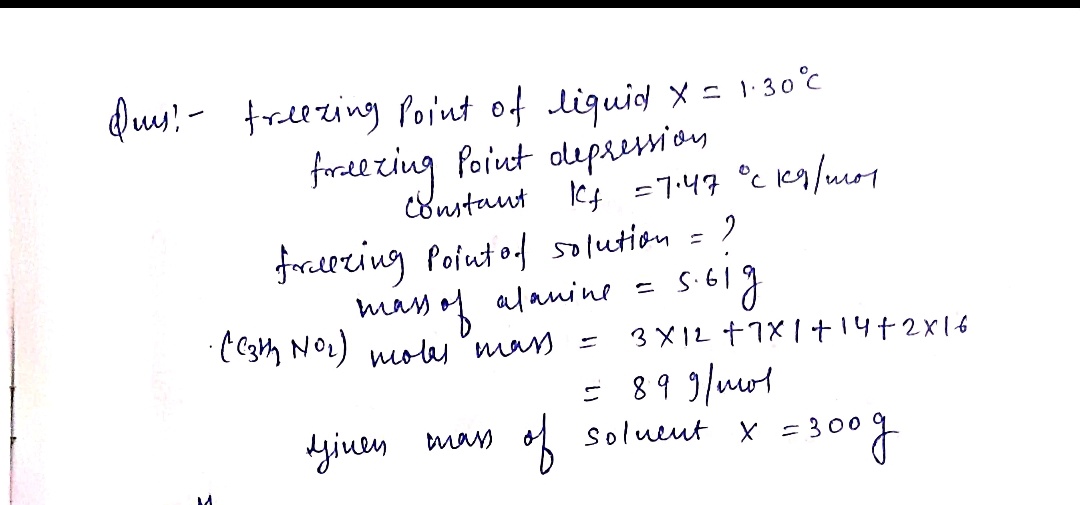 Qus:- freezing Point of liquid X = 1.30°C
freezing Point depression
constant Kf = 7.47 °c kg/mol
freezing Point of solution = ?
mass of alanine = 5.61 g
(C3H7 NO2) moler mass = 3×12 +7×1+14+2×16
= 89 g/mol
Given mass of solvent X = 300 g